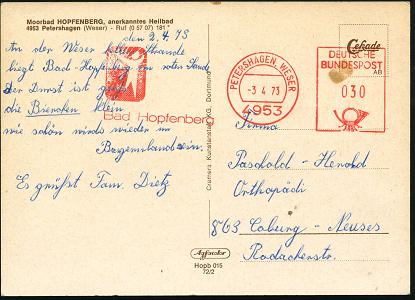 Moorbad HOPFENBERG, anerkanntes Heilbad
4953 Petershagen (Weser) - Ruf (0 57 07) 181
den 2.4.73
An der Weser
liegt Bad-Hopfenberg im roten Sand.
Der Durst ist groß
die Bierchen klein
wie schön wirds wieder im
Es grüßt Fam. Dietz
Bad Hopfenberg
Cramers Kunstanstalt KG, Dortmund
PETERSHAGEN, WESER
-3 4 73
4953
Cekade
DEUTSCHE
BUNDESPOST
AB
030
Firma
Paschold-Herold
Orthopädi
863 Coburg-Neuses
Rodacherstr.
Hopb 015
72/2